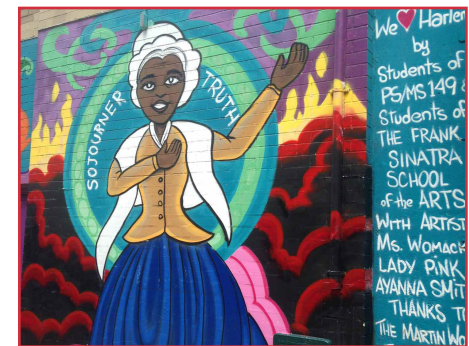 SOJOURNER
TRUTH
We Harle
by
Students of
PS/MS 149 &
Students of
THE FRANK
SINATRA
SCHOOL
of the ARTS
WITH ARTIST
Ms. WOMACK
LADY PINK
AYANNA SMIT
THANKS T
THE MARTIN WO